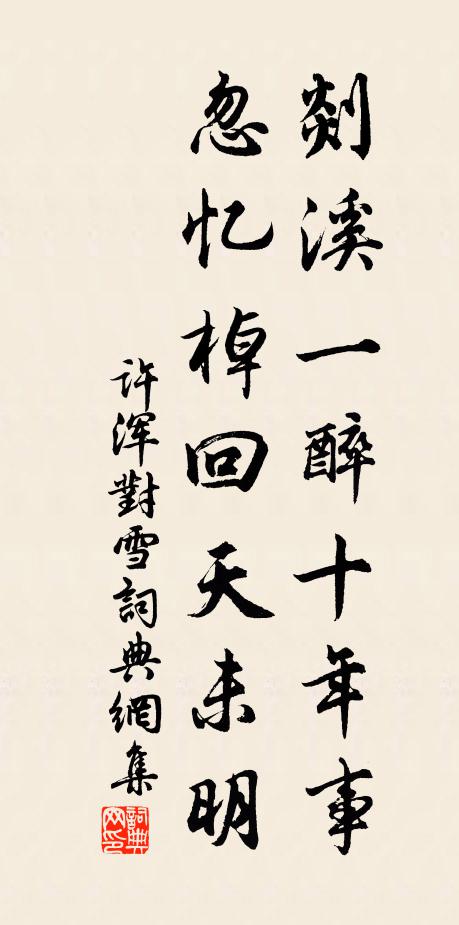 剡溪一醉十年事
忽忆棹回天未明
许浑對雪詞典網集
詞典网印